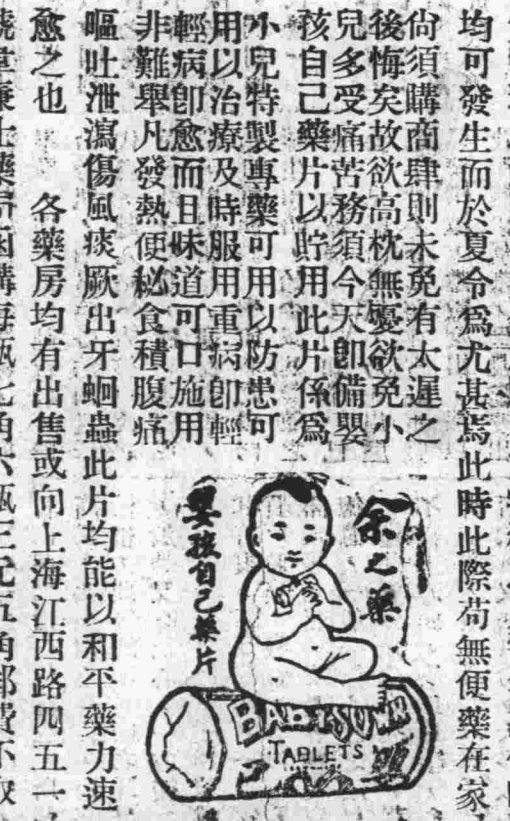 均可發生而於夏令爲尤甚焉此時此際苟無便藥在家
尙須購商肆則未免有太遲之
後悔矣故欲高枕無憂欲免小
兒多受痛苦務須今天卽備嬰
孩自己藥片以貯用此片係爲
小兒特製專藥可用以防患可
用以治療及時服用重病卽輕
輕病卽愈而且味道可口施用
非難舉凡發熱便秘食積腹痛
嘔吐泄瀉傷風痰厥出牙蛔蟲此片均能以和平藥力速
愈之也 各藥房均有出售或向上海江西路四五一
韋廉士藥局函購每瓶七角六瓶三元五角郵費不
余之藥
嬰孩自己藥片
BABY'S OWN
TABLETS